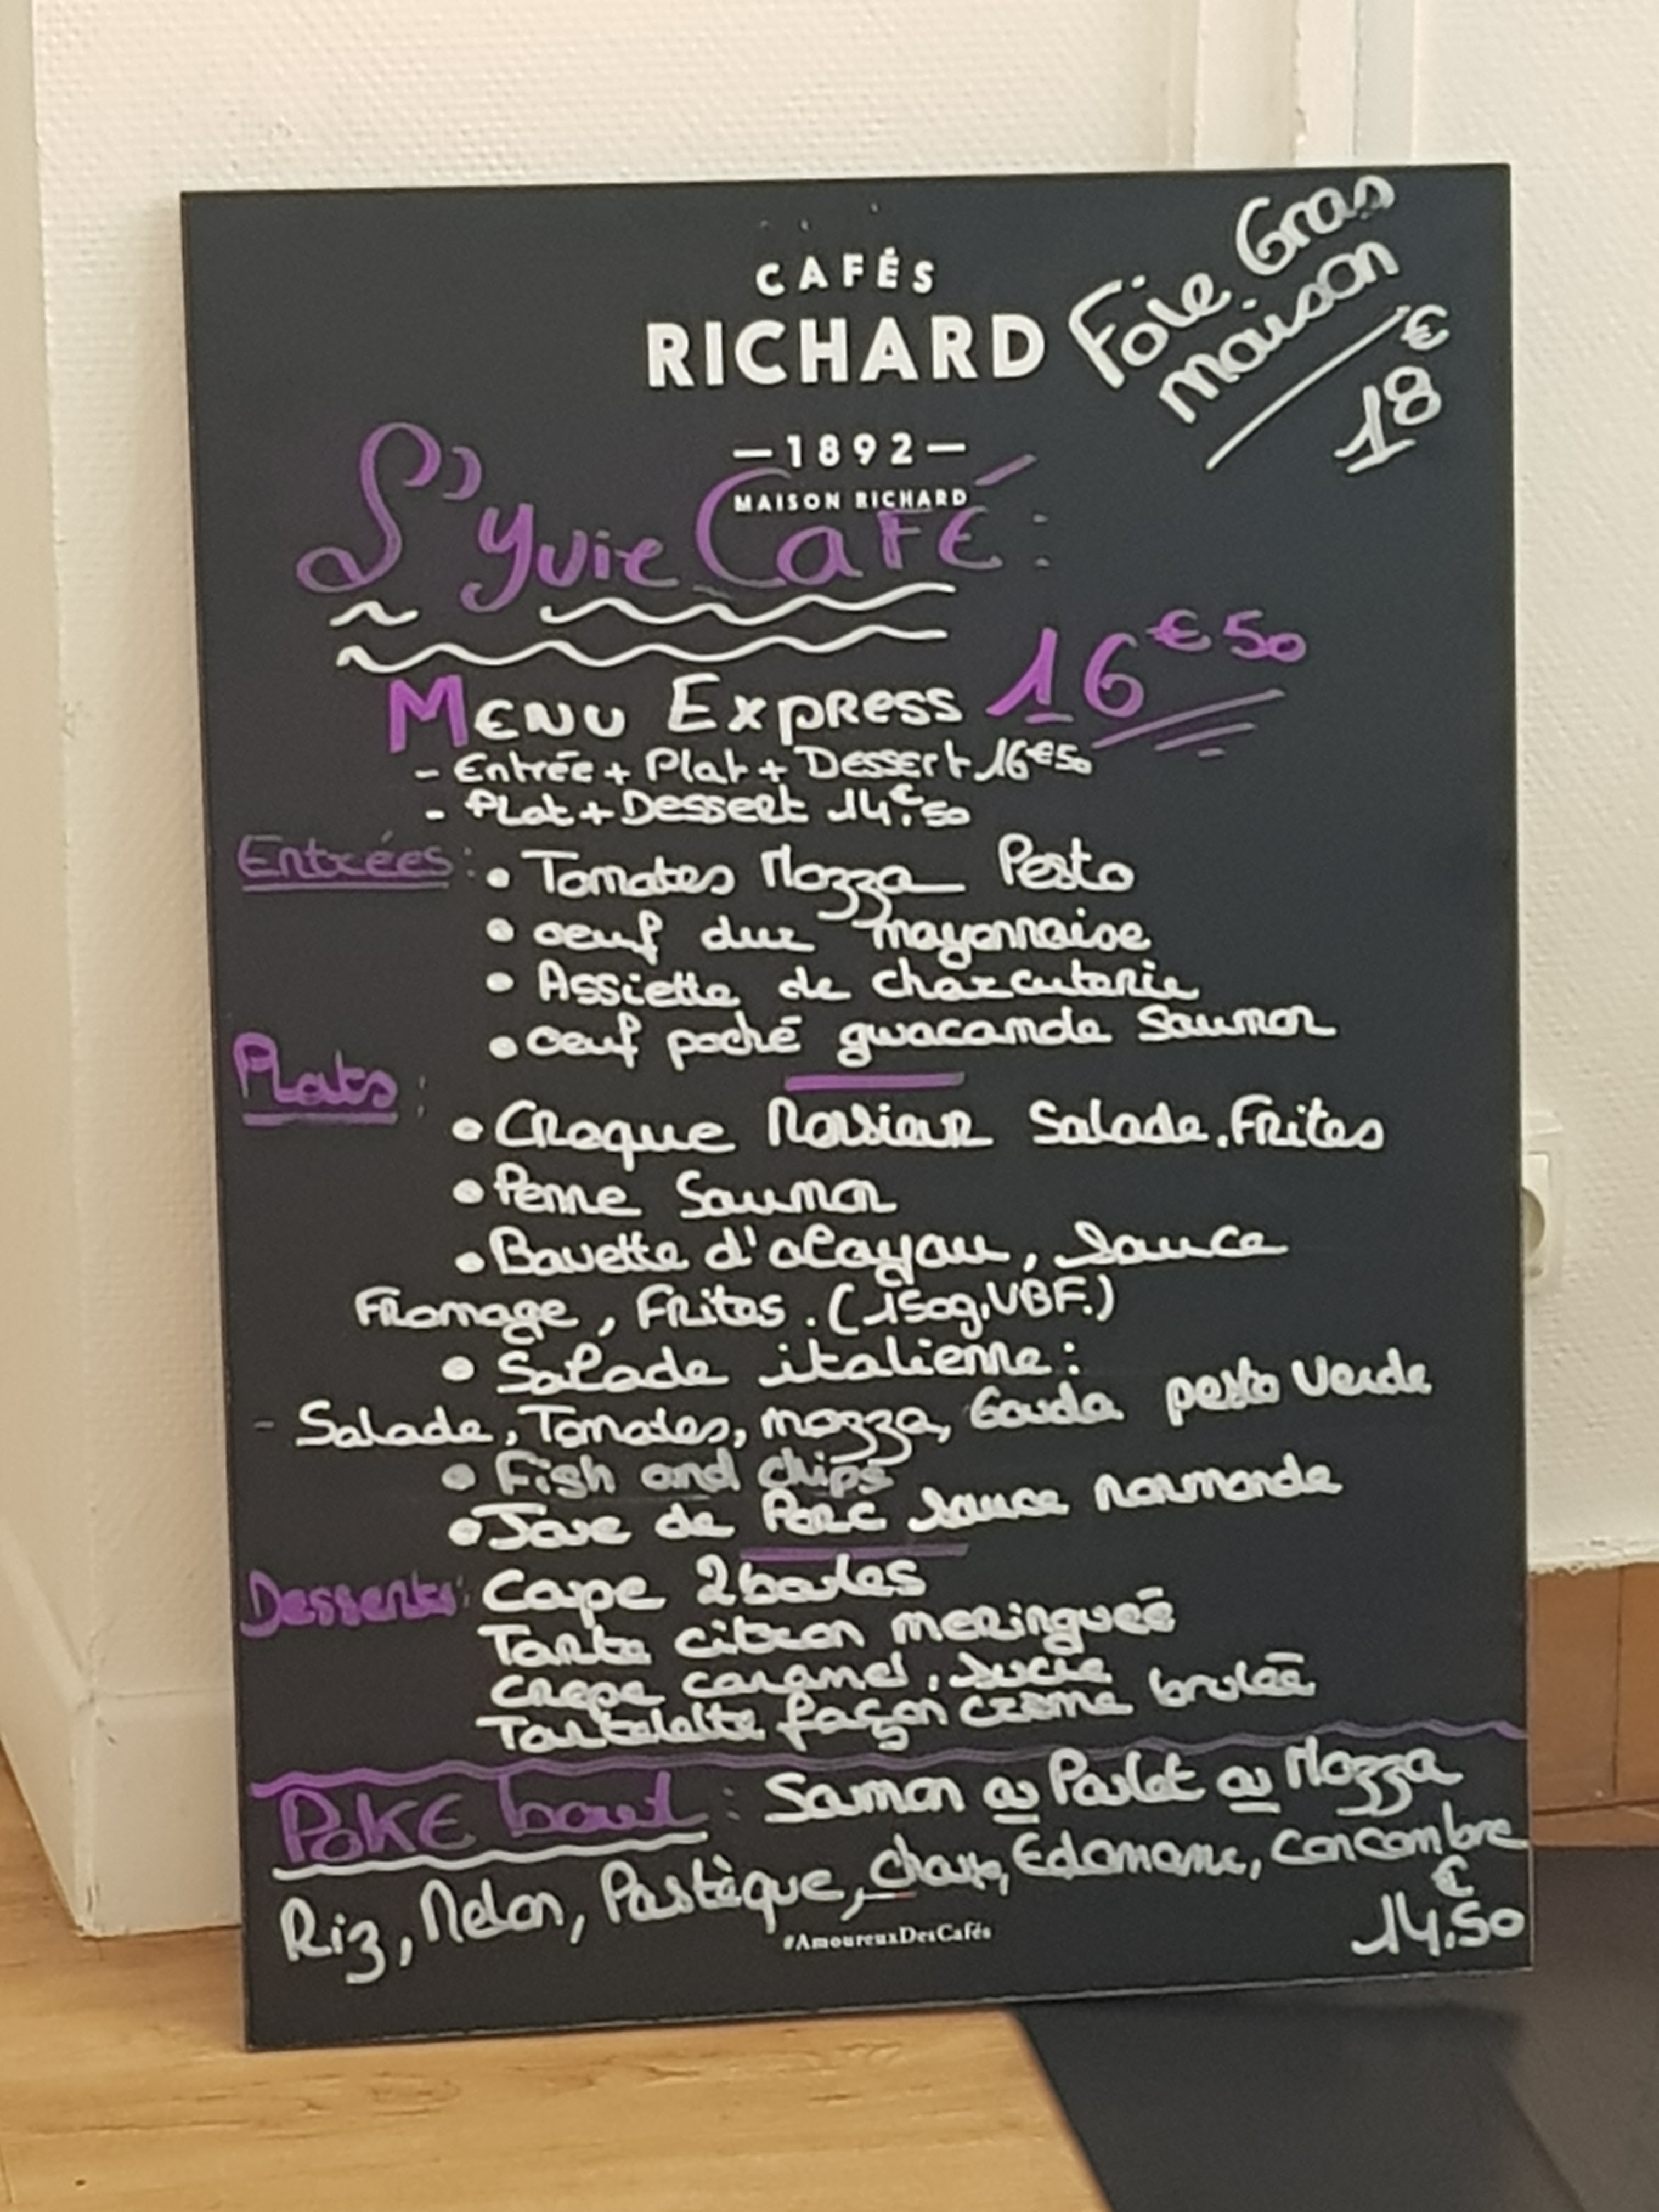 CAFÉS
RICHARD
—1892—
MAISON RICHARD
Foie Gras
maison
18€
S'yvie Café :
Menu Express 16€50
- Entrée + Plat + Dessert 16€50
- Plat + Dessert 14€,50
Entrées : • Tomates Mozza Pesto
• oeuf dur mayonnaise
• Assiette de charcuterie
• oeuf poché gwacamole Saumon
Plats :
• Croque Monsieur Salade.Frites
• Penne Saumon
• Bavette d'aloyau, Sauce
Fromage, Frites. (150g.VBF.)
• Salade italienne :
- Salade, Tomates, mozza, Gouda pesto Verde
• Fish and chips
• Joue de Porc Sauce normande
Desserts : Coupe 2 boules
Tarte citron meringuée
Crepe caramel, sucre
Tartelette façon crème brulée
POKE bowl : Saumon ou Poulet ou Mozza
Riz, Melon, Pastèque, choux, Edamame, Concombre
14,50 €
#AmoureuxDesCafés